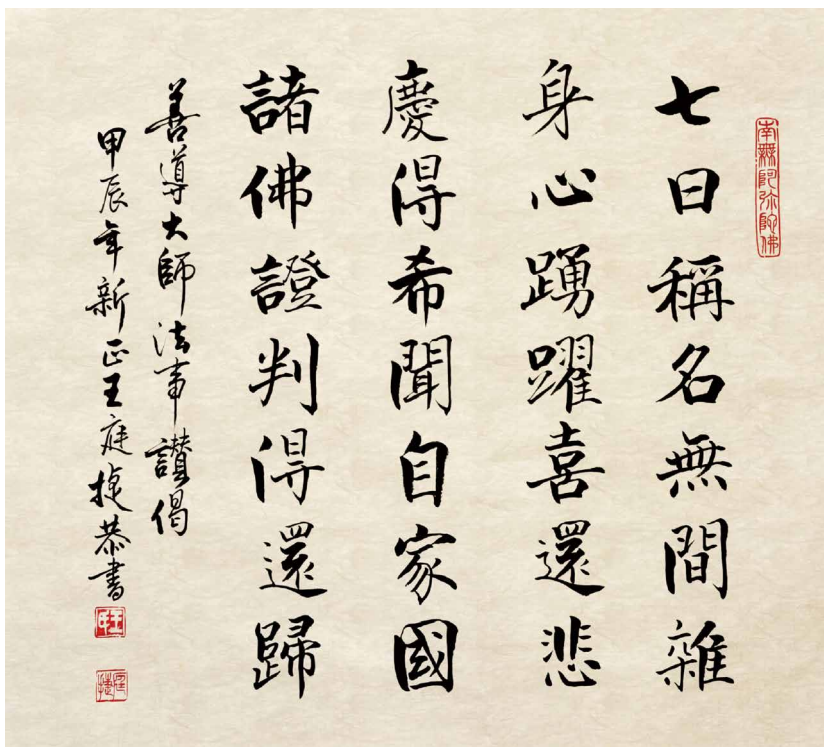 南無阿弥陀佛
七日稱名無間雜
身心踴躍喜還悲
慶得希聞自家國
諸佛證判得還歸
善導大師法事讚偈
甲辰年新正王庭捷恭書
王
庭捷